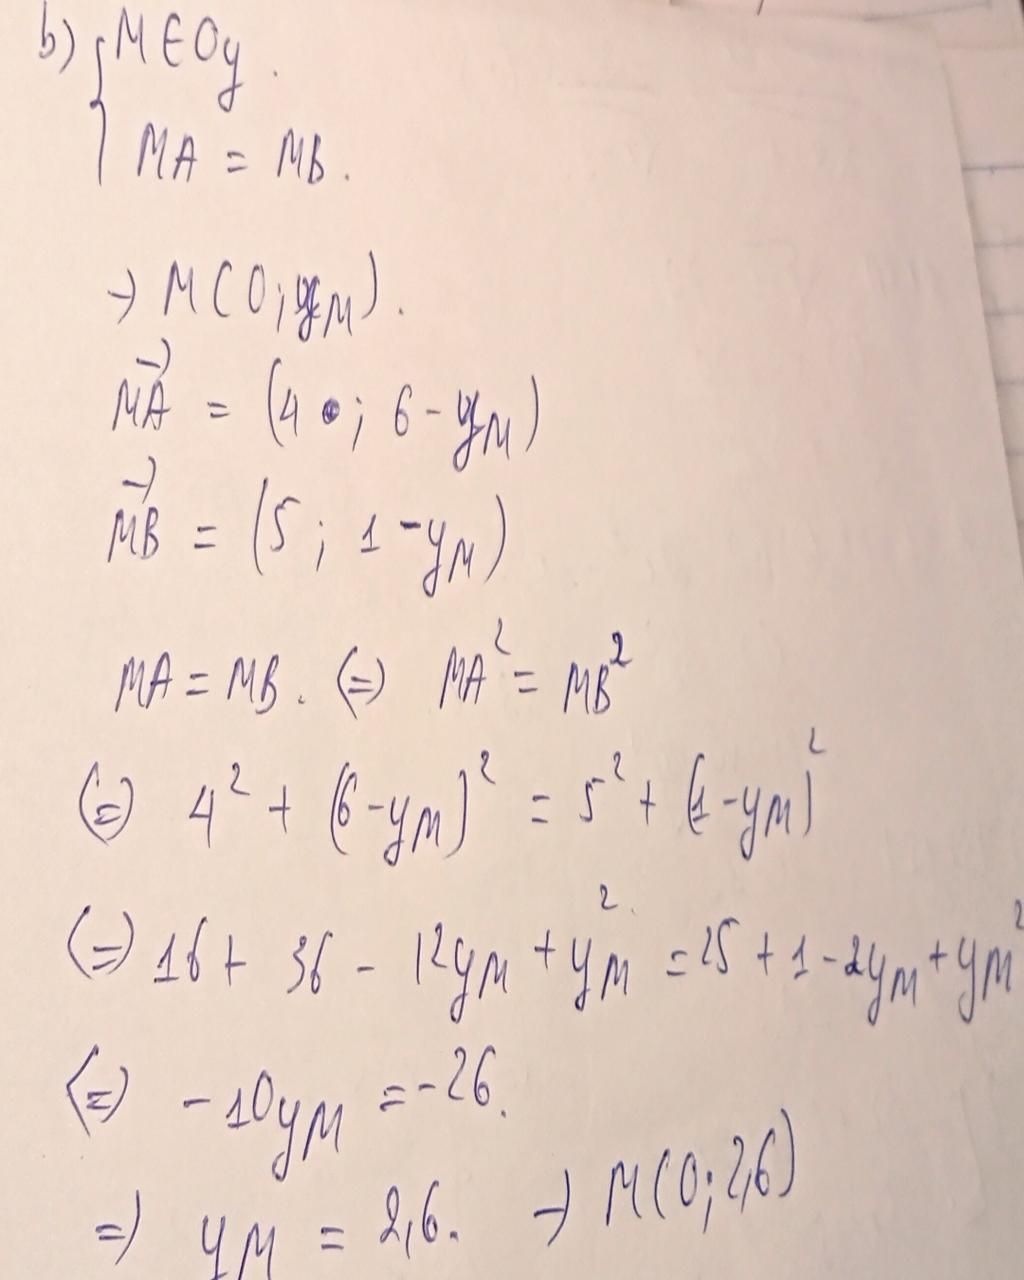 b) { M ∈ Oy.
MA = MB.
→ M(0; yM).
MA→ = (4 ; 6 - yM)
MB→ = (5 ; 1 - yM)
MA = MB. (=) MA² = MB²
(=) 4² + (6 - yM)² = 5² + (1 - yM)²
(=) 16 + 36 - 12yM + yM² = 25 + 1 - 2yM + yM²
(=) - 10yM = -26.
=) yM = 2,6. → M(0; 2,6)